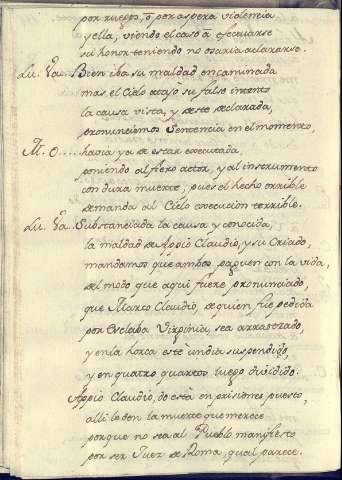 por ruegos, ò por aspera violencia
y ella, viendo el caso à efectuarse
su honor teniendo no osaria aclararse.
Lu. Va. Bien iba su maldad encaminada
mas el Cielo atajo su falso intento
la causa vista, y deste declarada,
pronunciemos Sentencia en el momento,
M. O..... havia ya de estar executada,
poniendo al fiero actor, y al instrumento
con dura muerte, pues el hecho orrible
demanda al Cielo execucion terrible.
Lu. Va. Substanciada la causa y conocida,
la maldad de Appio Claudio, y su Criado,
mandamos que ambos paguen con la vida,
del modo que aqui fuere pronunciado,
que Marco Claudio, de quien fue pedida
por Esclaba Virginia, sea arrastrado
y en la horca estè un dia suspendido,
y en quatro quartos luego dividido.
Appio Claudio, do està en prisiones puesto,
alli le den la muerte que merece
porque no sea al Pueblo manifiesto
por ser Juez de Roma, qual parece.